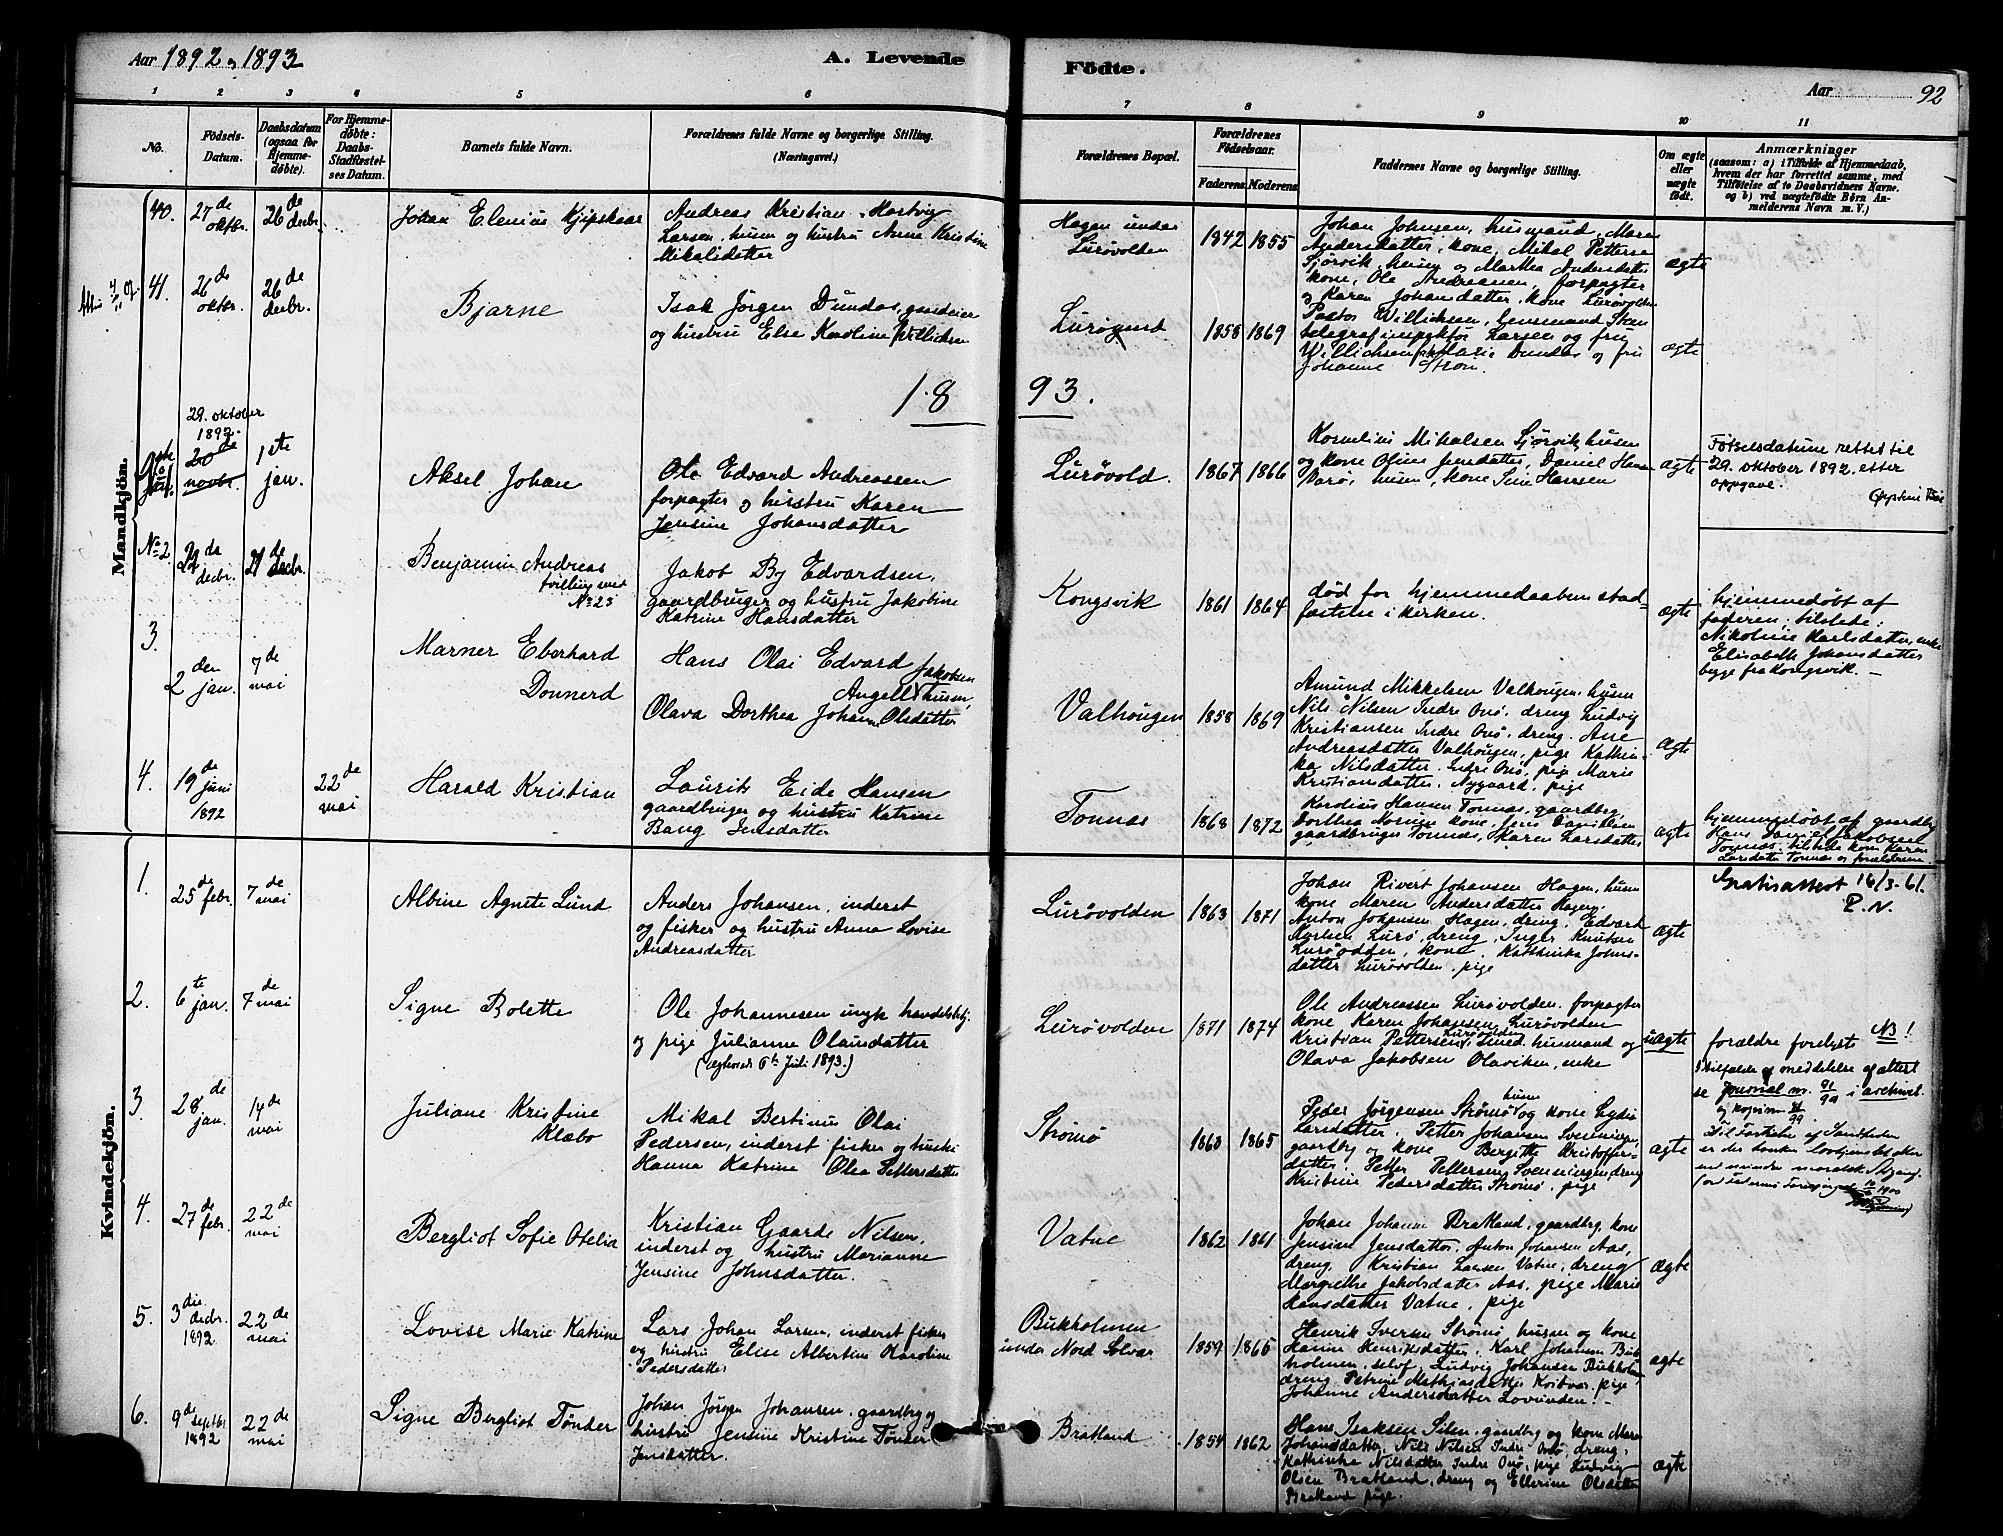 Aar 1892 og 1893
A. Levende
Födte.
Aar
92
1 2 3 4 5 6 7 8 9 10 11
No.
Födsels-
Datum.
Daabsdatum
(ogsaa for
Hjemme-
døbte).
For Hjemme-
døbte:
Daabs-
Stadfæstel-
ses Datum.
Barnets fulde Navn.
Forældrenes fulde Navne og borgerlige Stilling.
(Næringsvei.)
Forældrenes Bopæl.
Forældrenes
Födselsaar.
Faderens
Moderens
Faddernes Navne og borgerlige Stilling.
Om ægte
eller
uægte
født.
Anmærkninger
(saasom: a) i Tilfælde af Hjemmedaab,
hvem der har forrettet samme, med
Tilføielse af to Daabsvidners Navne.
og b) ved uægtefødte Børn An-
melderens Navn m. V.)
Mandkjön.
40.
27de
oktbr.
26de
decbr.
Johan Elenius Kjipskar
Andreas Kristian Hartvig
Larsen, husm og hustru Anne Kristine
Mikalsdatter
Hagen under
Lurøvolden
1842 1855
Johan Johnsen, husmand, Maren
Andersdatter, kone, Mikal Petterse
Sjørvik, husm og Marthea Andersdatter
kone, Ole Andreasen, forpagter
og Karen Johansdatter, kone Lurøvolden
ægte
41.
26de
oktbr.
26de
decbr.
Bjarne
Isak Jørgen Dundas, gaardeier
og hustru Else Karoline Willichsen
Lurøgaard
1858 1869
Pastor Willichsen, Lensmand Steen
telegrafinspektør Larsen og fru
Willichsen, frk Marie Dundas og fru
Johanne Strøm.
ægte
1893.
29. oktober
1892.
20de
novbr.
1ste
jan.
Aksel Johan
Ole Edvard Andreassen
forpagter og hustru Karen
Jensine Johansdatter
Lurøvold.
1867 1866
Kornelius Mikalsen Sjørvik husm
og kone Oline Jensdatter, Daniel Hansen
Varø, husm, kone Sine Hansen
ægte
Fødselsdatum rettes til
29. oktober 1892, etter
oppgave.
No 2
22de
decbr.
21de
decbr.
Benjamin Andreas
tvilling med
No 25
Jakob By Edvardsen,
gaardbruger og hustru Jakobine
Katrine Hansdatter
Kongsvik
1861 1864
død før hjemmedaabens stad-
fæstelse i kirken.
ægte
hjemmedøbt af
faderen; tilstede:
Nikoline Karlsdatter, enke
Elisabeth Johansdatter
begge fra Kongsvik. —
3.
2den
jan.
7de
mai
Marner Eberhard
Donnerd
Hans Olai Edvard Jakobsen
Angell, husm,
Olava Dorthea Johanne Olsdatter
Valhougen
1858 1869
Amund Mikkelsen Valhougen, husm
Nils Nilsen Indre Onø, dreng Ludvig
Kristiansen Indre Onø, dreng. Ane
Andreasdatter Valhougen, pige Kathin-
ka Nilsdatter, Indre Onø, pige Marie
Kristiansdatter, Nygaard, pige
ægte
4.
19de
juni
1892
22de
mai
Harald Kristian
Laurits Eide Hansen
gaardbruger og hustru Katrine
Bang Jensdatter
Tonnes
1868 1872
Karolius Hansen Tonnes, gaardbrg,
gaardbruger Tonnes, Karen Larsdatter
ægte
hjemmedøbt af gaardbr
Hans Daniel Jakobsen
Tonnes, tilstede kone Karen
Larsdatter Tonnes og forældrene
Kvindekjön.
1.
25de
febr.
7de
mai
Albine Agnete Lund
Anders Johansen, inderst
og fisker og hustru Anna Lovise
Andreasdatter
Lurøvolden
1863 1871
Johan Rivert Johansen Hagen, husm
kone Maren Andersdatter Hagen,
Anton Johansen Hagen, dreng, Edvard
Karlsen Lurø, dreng, Inger Knutsen
Lurøvolden, kone, Kathinka Johns-
datter Lurøvolden, pige
ægte
Gratisattest 16/3-61.
P.N.
2.
6te
jan.
7de
mai
Signe Bolette
Ole Johannesen ungk handelsbetj.
og pige Julianne Olausdatter
(ægteviet 6te Juli 1893.)
Lurøvolden
1871 1874
Ole Andreassen Lurøvolden, forpagter
kone Karen Johansen Lurøvolden
Kristian Pettersen Lurøvolden Smed, husmand og
Olava Jakobsen Olaviken, enke
uægte
NB!
forældre forelovet
I tilfælde af meddelelse af attest
se Journal nr. 91/99 i archivet
3.
28de
jan.
14de
mai
Juliane Kristine
Klæbo
Mikal Bertinus Olai
Pedersen, inderst fisker og hustru
Hanna Katrine Olea Pettersdatter
Strømø
1863 1865
Peder Jørgensen Strømø husm og kone Lydie
Larsdatter, Petter Johansen Svenningen,
gaardbg og kone Bergitte Kristoffer-
datter, Petter Pettersen Svenningen, dreng
Kristine Pedersdatter Strømø, pige
ægte
4.
27de
febr.
22de
mai
Bergliot Sofie Otelie
Kristian Gaarde Nilsen,
inderst og hustru Marianne
Jensine Johnsdatter.
Vatne
1862 1861
Johan Johansen Bratland, gaardbg, kone
Jensine Jensdatter, Anton Johansen Aas,
dreng, Kristian Larsen Vatne, dreng
Margrethe Jakobsdatter Aas, pige Marie
Hansdatter Vatne, pige
ægte
5.
3die
decbr.
1892
22de
mai
Lovise Marie Katrine
Lars Johan Larsen, inderst fisker
og hustru Elise Albertine Karoline
Pedersdatter
Bukholmen
under Nord Solvær
1859 1865
Henrik Iversen Strømø, husm og kone
Hanna Henriksdatter, Karl Johansen Buk-
holmen, selvf, Ludvig Johansen Bukholm
dreng Petrine Mathiasdatter Kvitvær, pige,
Johanne Andersdatter Lovunden. —
ægte
6.
9de septbr
1892
22de
mai
Signe Bergliot Tønder
Johan Jørgen Johansen, gaardbg og
hustru Jensine Kristine Tønder
Jensdatter.
Bratland
1854 1862
Hans Isaksen Silen, gaardbg og kone Mara
Johansdatter, Nils Nilsen Indre Onø, dreng,
Kathinka Nilsdatter Indre Onø, pige Ludvig
Olsen Bratland, dreng og Ellerine Olsdatter
Bratland pige.
ægte